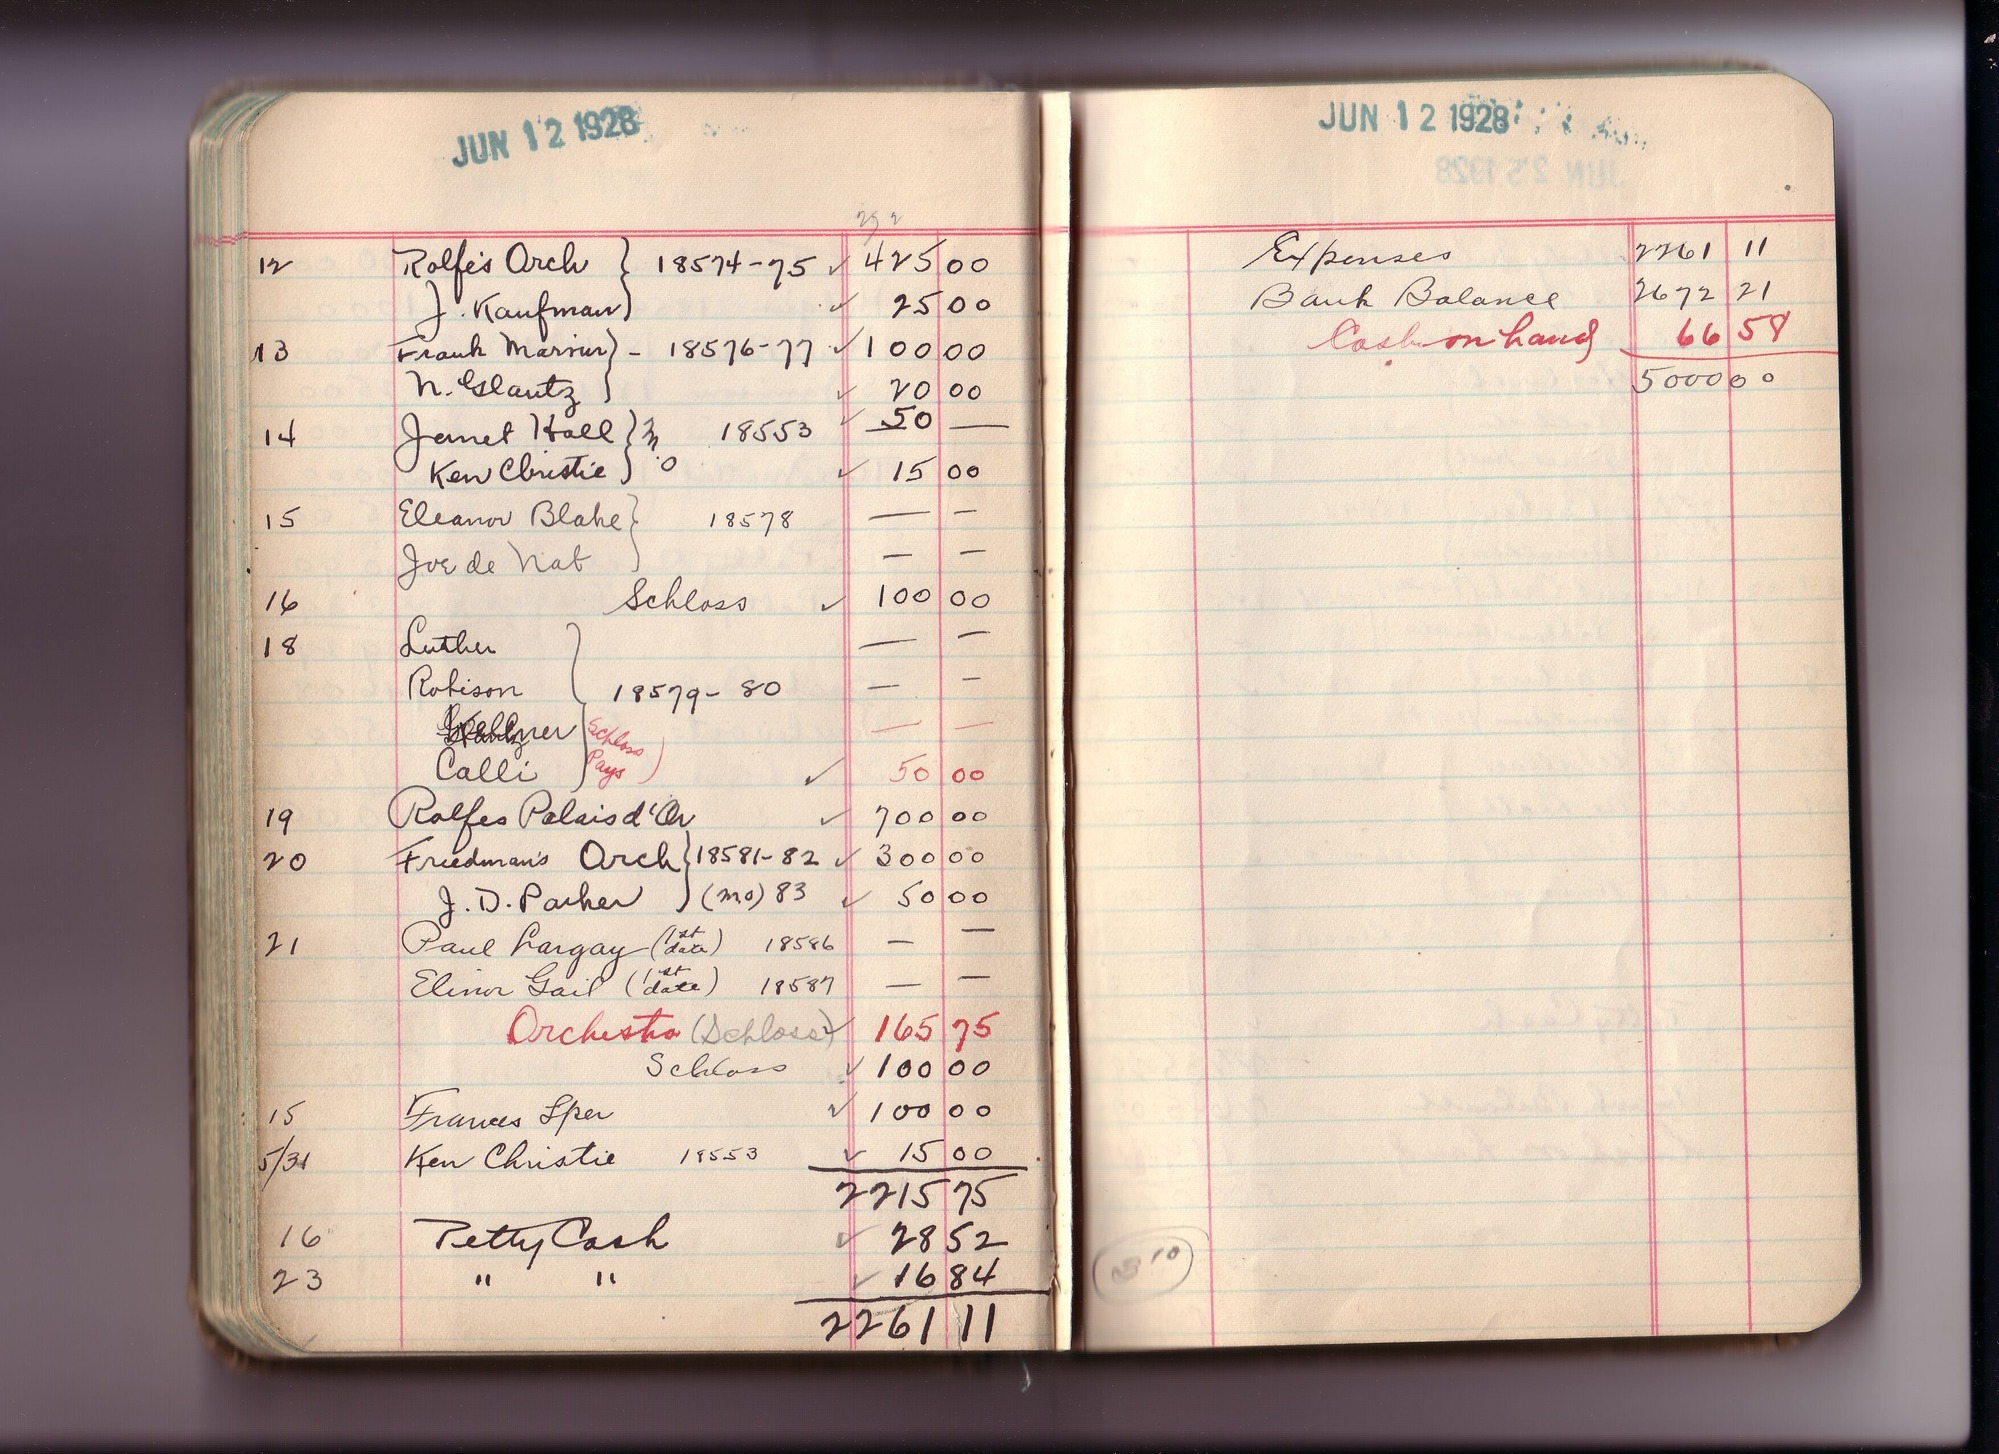 JUN 12 1928
12 Rolfe's Orch } 18574-75 ✓ 425 00
J. Kaufman } ✓ 25 00
13 Frank Marvin } - 18576-77 ✓ 100 00
N. Glantz } ✓ 20 00
14 Jemet Hall } 18553 ✓ 50 —
Ken Christie } ✓ 15 00
15 Eleanor Blake } 18578 — —
Joe de Nat } — —
16 Schloss ✓ 100 00
18 Luther — —
Robison 18579-80 — —
Schloss — —
Calli Pays ) ✓ 50 00
19 Rolfes Palais d'Or ✓ 700 00
20 Friedman's Orch } 18581-82 ✓ 300 00
J. D. Parker } (mo) 83 ✓ 50 00
21 Paul Largay (1st date) 18586 — —
Elinor Gail (1st date) 18587 — —
Orchestra (Schloss) ✓ 165 75
Schloss ✓ 100 00
15 Frances Sper ✓ 100 00
5/31 Ken Christie 18553 ✓ 15 00
2215 75
16 Petty Cash ✓ 28 52
23 " " ✓ 16 84
2261 11
JUN 12 1928
Expenses 2261 11
Bank Balance 2672 21
Cash on hand 66 58
5000 00